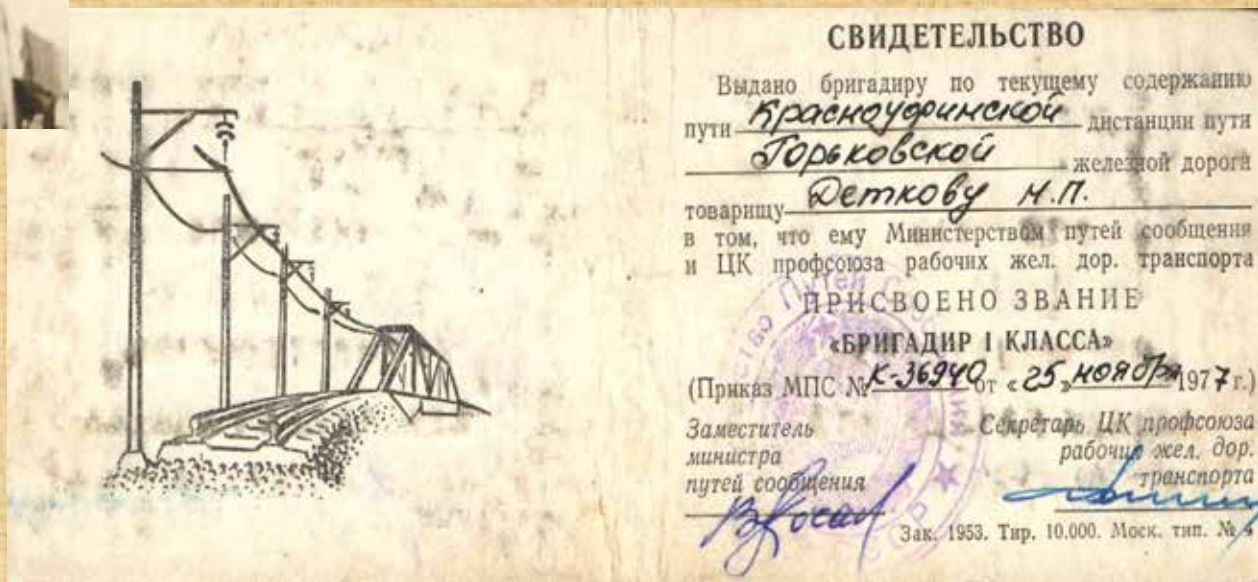 СВИДЕТЕЛЬСТВО
Выдано бригадиру по текущему содержанию
пути Красноуфимской дистанции пути
Горьковской железной дорога
товарищу Деткову Н.П.
в том, что ему Министерством путей сообщения
и ЦК профсоюза рабочих жел. дор. транспорта
ПРИСВОЕНО ЗВАНИЕ
«БРИГАДИР I КЛАССА»
(Приказ МПС № К-36940 от «25» ноября 1977 г.)
Заместитель
министра
путей сообщения
Секретарь ЦК профсоюза
рабочих жел. дор.
транспорта
Зак. 1953. Тир. 10.000. Моск. тип. №